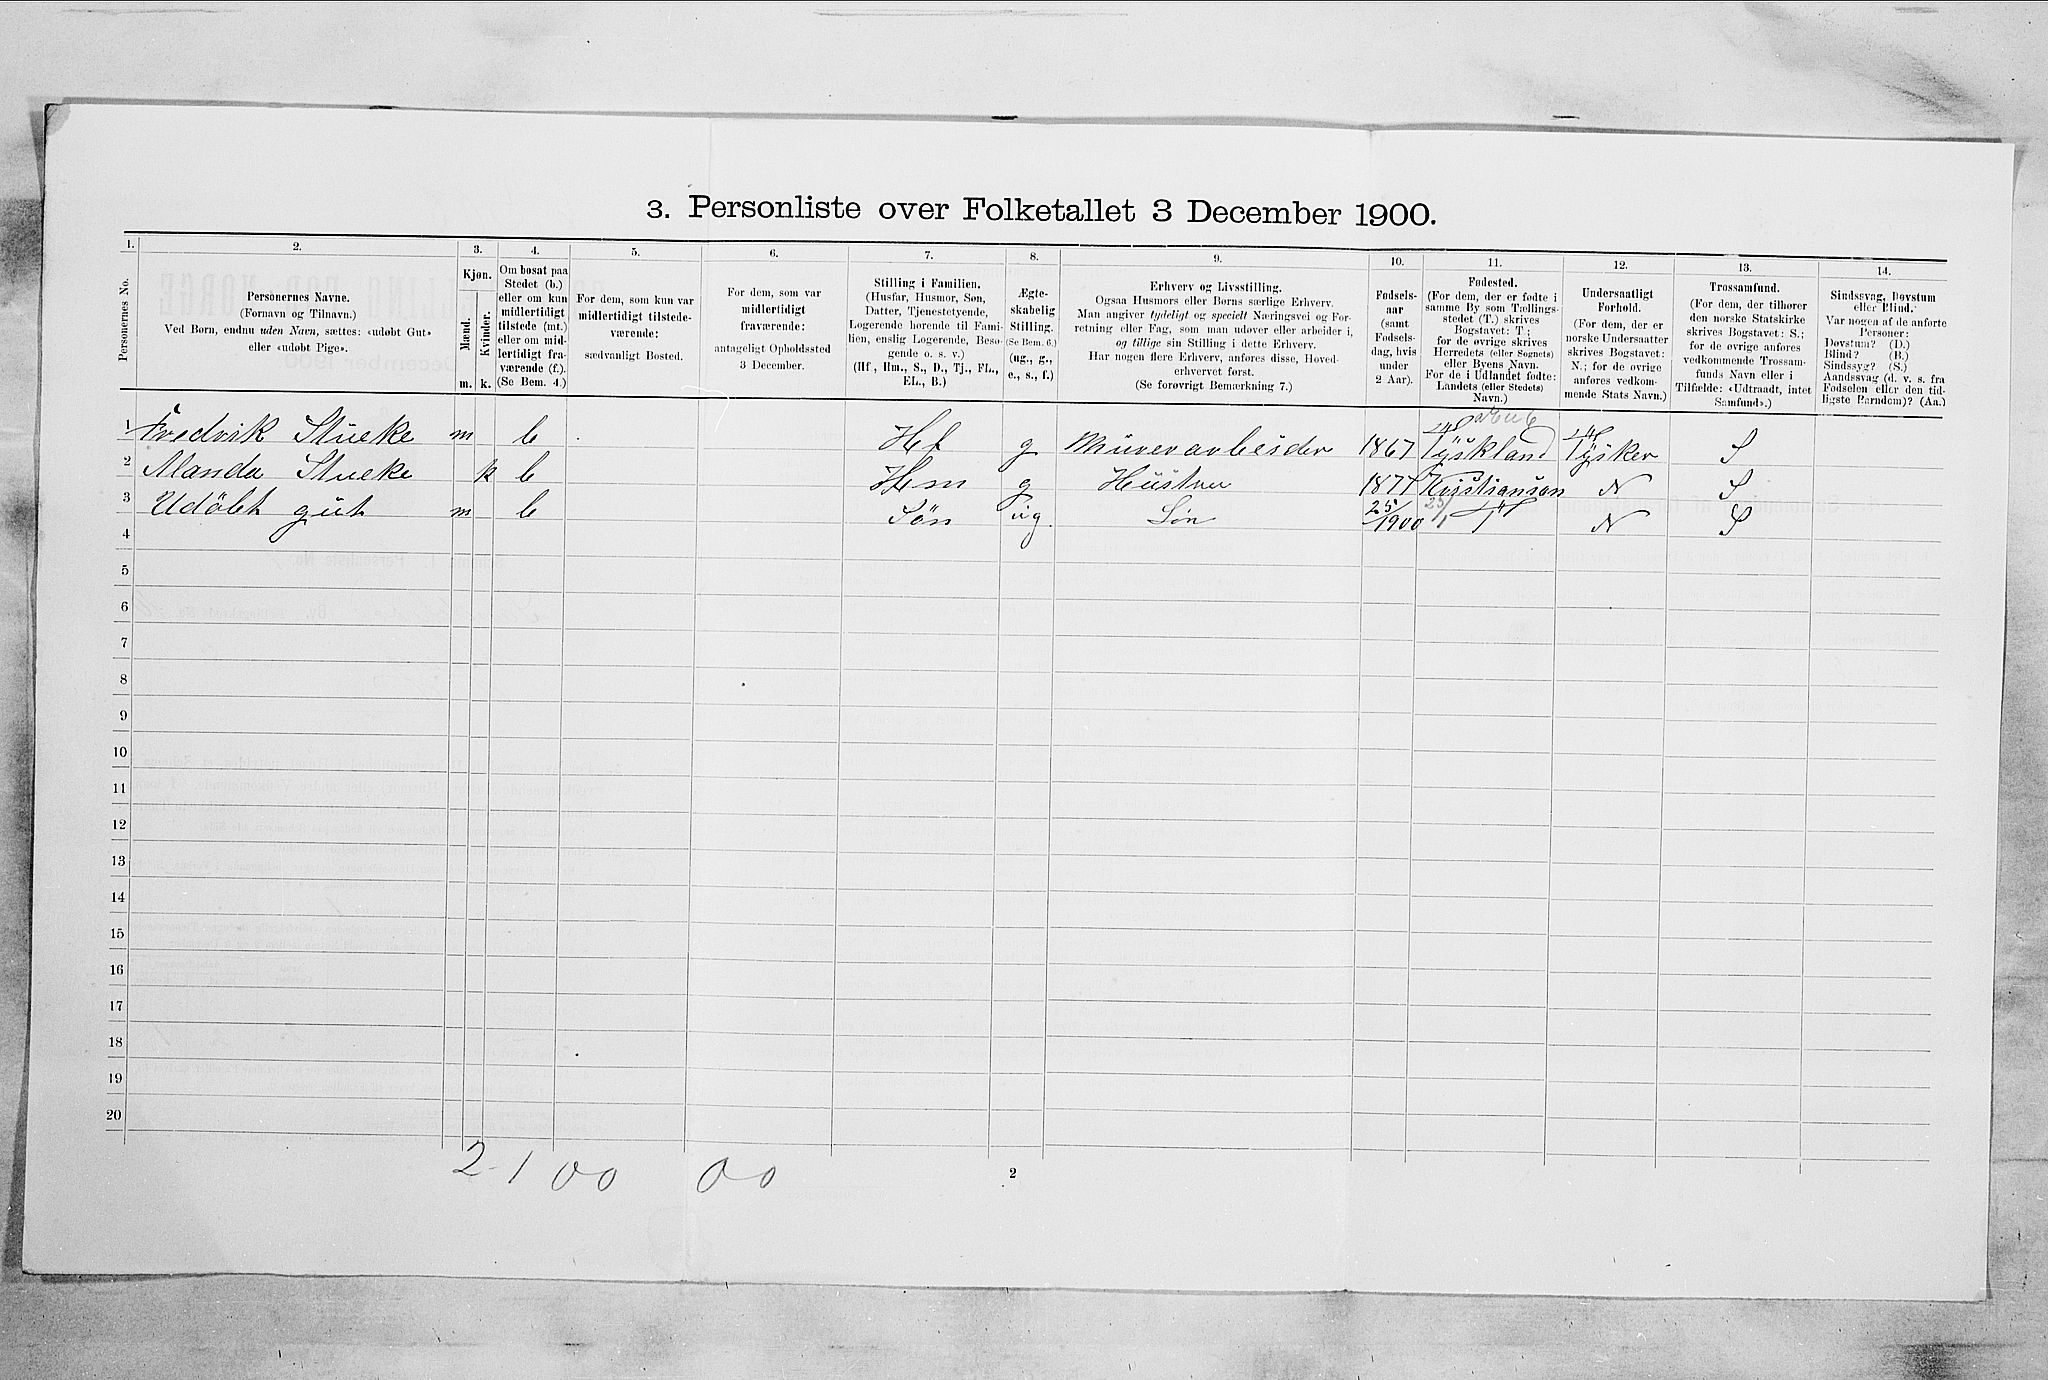 3. Personliste over Folketallet 3 December 1900.
1. 2. 3. 4. 5. 6. 7. 8. 9. 10. 11. 12. 13. 14.
Personernes No.
Personernes Navne.
(Fornavn og Tilnavn.)
Ved Børn, endnu uden Navn, sættes: «udøbt Gut»
eller «udøbt Pige».
Kjøn.
Mænd.
Kvinder.
m. k.
Om bosat paa
Stedet (b.)
eller om kun
midlertidigt
tilstede (mt.)
eller om mid-
lertidigt fra-
værende (f.).
(Se Bem. 4.)
For dem, som kun var
midlertidigt tilstede-
værende:
sædvanligt Bosted.
For dem, som var
midlertidigt
fraværende:
antageligt Opholdssted
3 December.
Stilling i Familien.
(Husfar, Husmor, Søn,
Datter, Tjenestetyende,
Logerende hørende til Fami-
lien, enslig Logerende, Besø-
gende o. s. v.)
(Hf., Hm., S., D., Tj., FL.,
EL., B.)
Ægte-
skabelig
Stilling.
(Se Bem. 6.)
(ug., g.,
e., s., f.)
Erhverv og Livsstilling.
Ogsaa Husmors eller Børns særlige Erhverv.
Man angiver tydeligt og specielt Næringsvei og For-
retning eller Fag, som man udøver eller arbeider i,
og tillige sin Stilling i dette Erhverv.
Har nogen flere Erhverv, anføres disse, Hoved-
erhvervet først.
(Se forøvrigt Bemærkning 7.)
Fødsels-
aar
(samt
Fødsels-
dag, hvis
under
2 Aar).
Fødested.
(For dem, der er fødte i
samme By som Tællings-
stedet (T.) skrives
Bogstavet: T.;
for de øvrige skrives
Herredets (eller Sognets)
eller Byens Navn.
For de i Udlandet fødte:
Landets (eller Stedets)
Navn.)
Undersaatligt
Forhold.
(For dem, der er
norske Undersaatter
skrives Bogstavet:
N.; for de øvrige
anføres vedkom-
mende Stats Navn.)
Trossamfund.
(For dem, der tilhører
den norske Statskirke
skrives Bogstavet: S.;
for de øvrige anføres
vedkommende Trossam-
funds Navn eller i
Tilfælde: «Udtraadt, intet
Samfund».)
Sindssvag, Døvstum
eller Blind.
Var nogen af de anførte
Personer:
Døvstum? (D.)
Blind? (B.)
Sindssyg? (S.)
Aandssvag (d. v. s. fra
Fødselen eller den tid-
ligste Barndom)? (Aa.)
1 Fredrik Stueke m b Hf g Mürerarbeider 1867 Tyskland Tysker S
2 Alanda Stueke k b Hm g Hüstru 1877 Kristiansan N S
3 Udöbt güt m b Sön üg Sön 25/1 1900 T N S
4
5
6
7
8
9
10
11
12
13
14
15
16
17
18
19
20
2 1 00 00
2